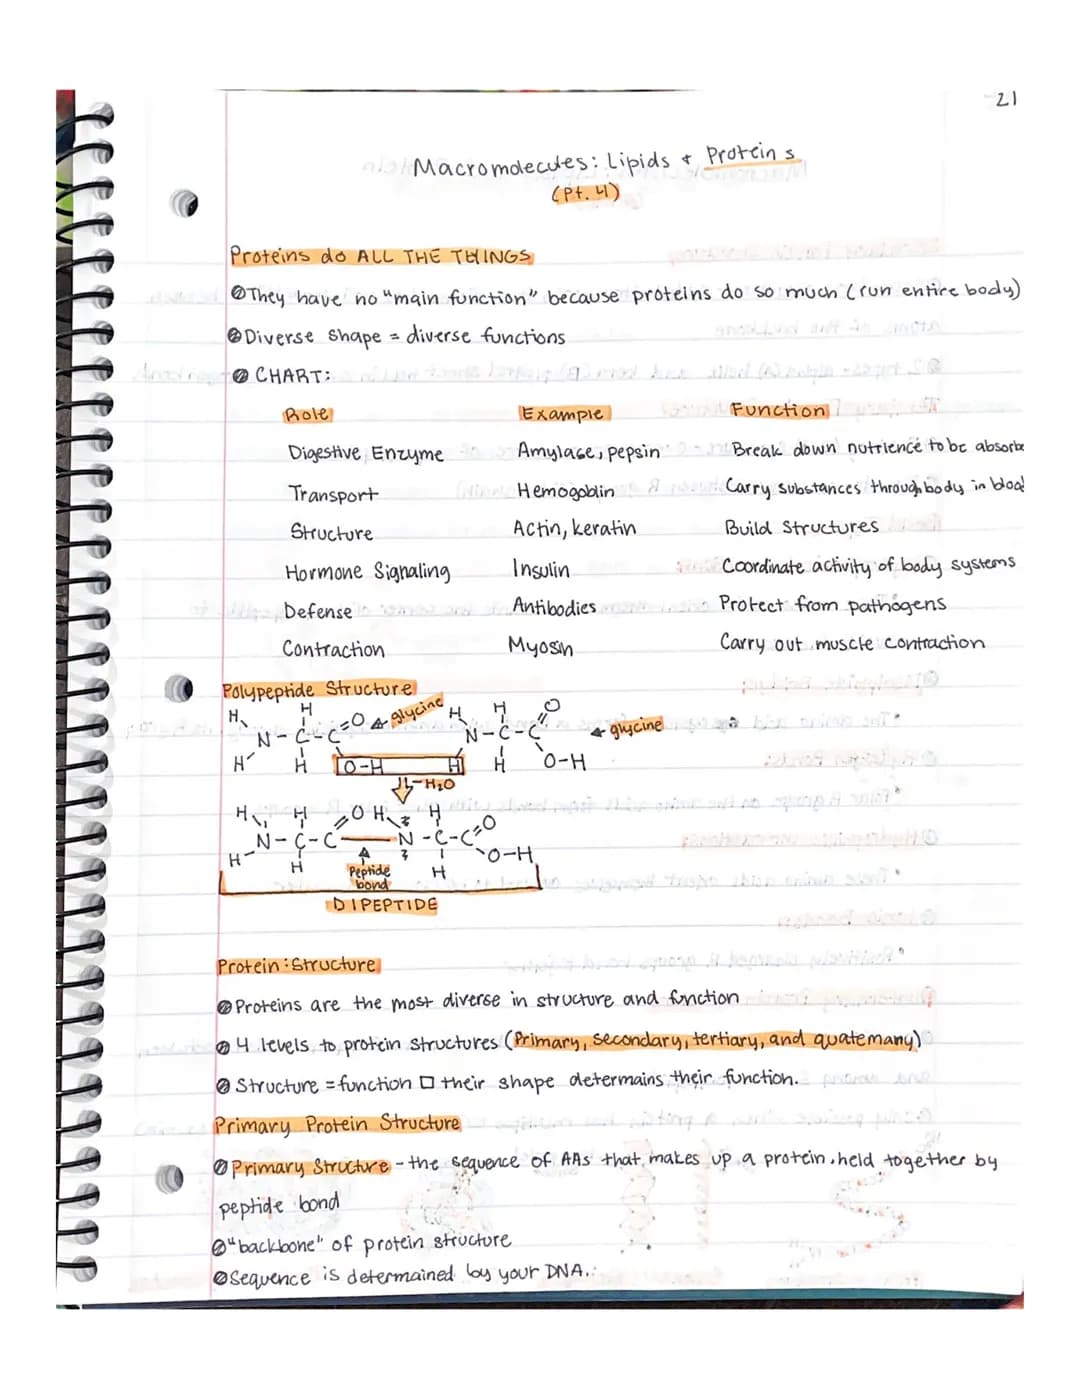 21
Macromolecules: Lipids + Proteins
(Pt. 4)
Proteins do ALL THE THINGS
They have no "main function" because proteins do so much (run entire body)
Diverse shape = diverse functions
CHART:
Role Example Function
Digestive Enzyme Amylase, pepsin Break down nutrience to be absorbe
Transport Hemogoblin Carry substances through body in blood
Structure Actin, keratin Build structures
Hormone Signaling Insulin Coordinate activity of body systems
Defense Antibodies Protect from pathogens
Contraction Myosin Carry out muscle contraction
Polypeptide Structure
H H O glycine H H O glycine
N-C-C N-C-C
H H O-H H H O-H
-H₂O
H H O H H O
N-C-C N-C-C
H H H O-H
Peptide
bond
DIPEPTIDE
Protein Structure
Proteins are the most diverse in structure and function
4 levels to protein structures (Primary, secondary, tertiary, and quatemany)
Structure = function □ their shape determains their function.
Primary Protein Structure
Primary Structure - the sequence of AAs that makes up a protein, held together by
peptide bond
"backbone" of protein structure
Sequence is determained by your DNA.